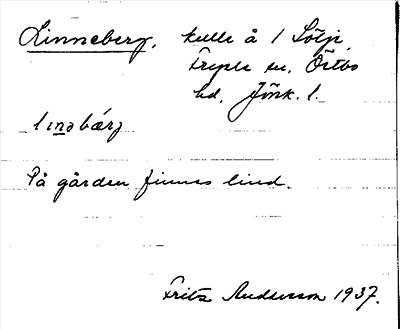 Linneberg, kulle å 1 Sölje,
Fryele sn, Östbo
hd, Jönk. l.
linəbárj
På gården finnes lind.
Fritz Andersson 1937.